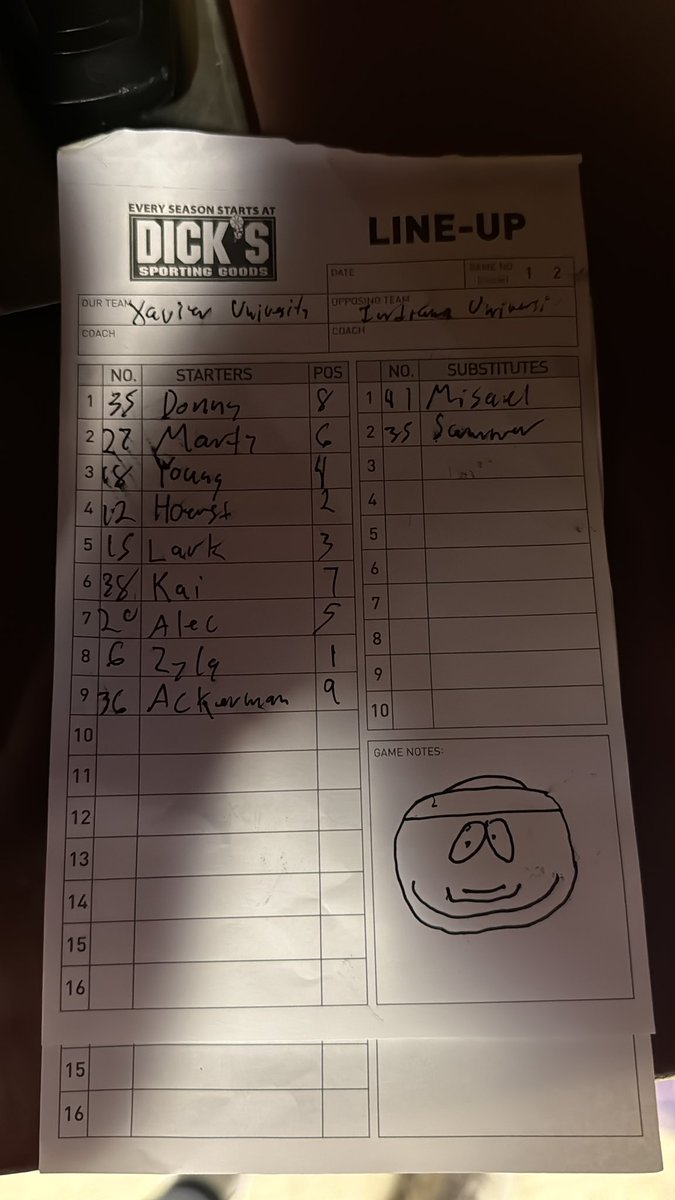 EVERY SEASON STARTS AT
DICK'S
SPORTING GOODS
LINE-UP
DATE
GAME NO. 1 2
(Circle)
OUR TEAM Xavier University
OPPOSING TEAM Indiana Universi
COACH
COACH
NO. STARTERS POS
1 35 Donny 8
2 27 Marty 6
3 18 Young 4
4 12 Hoerst 2
5 15 Lark 3
6 38 Kai 7
7 20 Alec 5
8 6 Zyla 1
9 36 Ackerman 9
10
11
12
13
14
15
16
NO. SUBSTITUTES
1 41 Misael
2 35 Sammer
3
4
5
6
7
8
9
10
GAME NOTES:
15
16